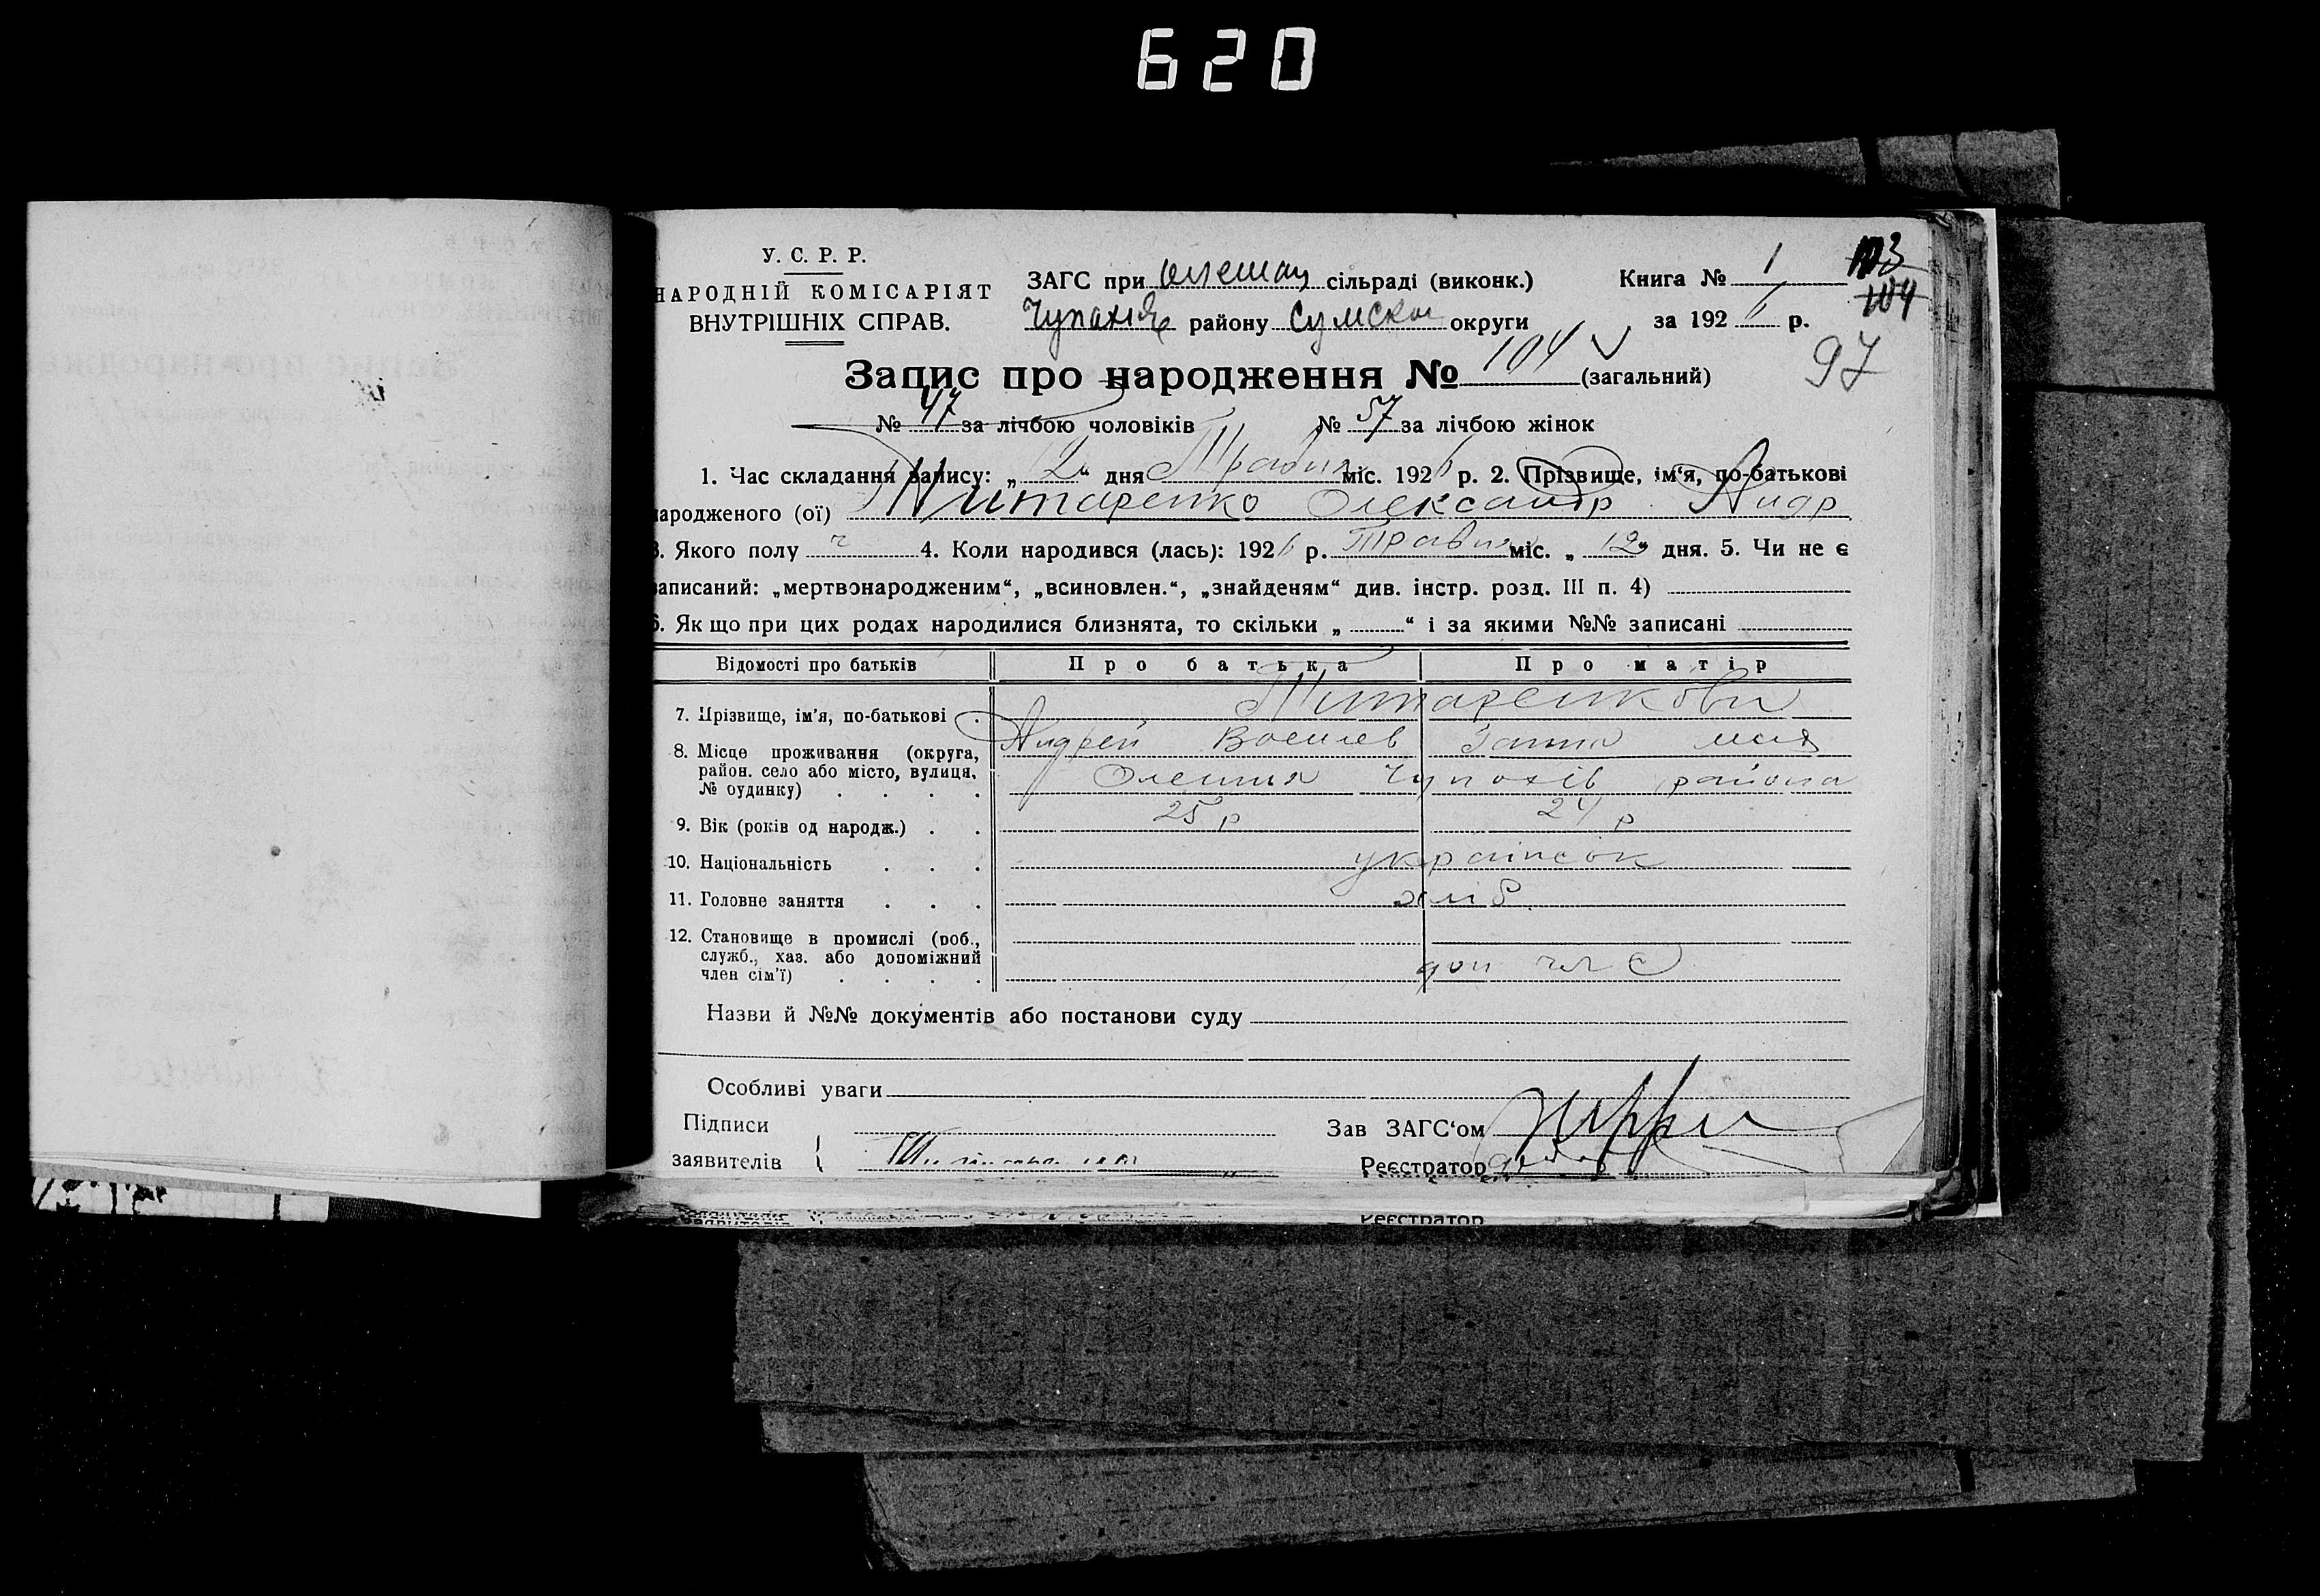 620
У. С. Р. Р.
НАРОДНІЙ КОМІСАРІЯТ
ВНУТРІШНІХ СПРАВ.
ЗАГС при сільраді (виконк.)
району Сумской округи
Книга № 1
за 1926 р.
103
104
97
Запис про народження № 104 (загальний)
№ 47 за лічбою чоловіків № 57 за лічбою жінок
1. Час складання запису: „ “ дня Травня міс. 1926 р. 2. Прізвище, ім‘я, по-батькові
ародженого (ої) Титаренко Олександр Андр
3. Якого полу ч 4. Коли народився (лась): 1926 р. Травня міс. „ 12 “ дня. 5. Чи не є
записаний: „мертвонародженим“, „всиновлен.“, „знайденям“ див. інстр. розд. III п. 4)
6. Якщо при цих родах народилися близнята, то скільки „ “ і за якими №№ записані
Відомості про батьків Про батька Про матір
7. Прізвище, ім'я, по-батькові . Титаренкови
Андрей Василев Ганна
8. Місце проживання (округа,
район, село або місто, вулиця,
№ будинку) . . . . Олешня Чупахів района
9. Вік (років од народж.) . . 25 р 24 р
10. Національність . . .
11. Головне заняття . . . хліб
12. Становище в промислі (роб.,
служб., хаз. або допоміжний
член сім'ї) . . . . доп чл с
Назви й №№ документів або постанови суду
Особливі уваги
Підписи
заявителів {
Зав ЗАГС‘ом
Реєстратор
Реєстратор